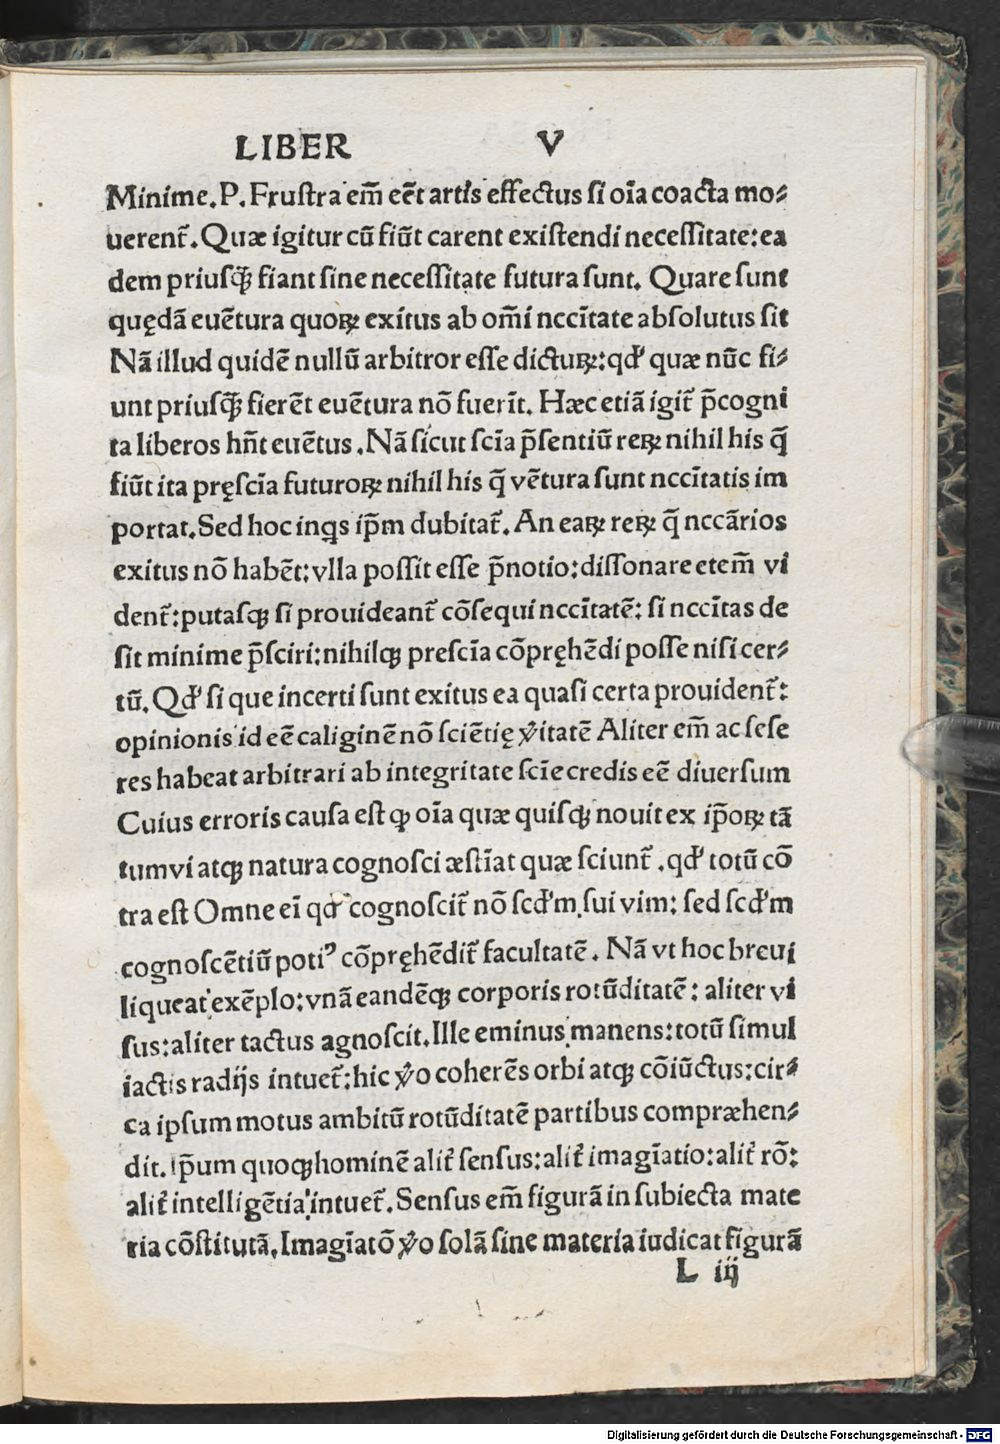 LIBER V
Minime.P.Fruſtra em̄ eēt artis effectus ſi oīa coacta mo⸗
uerent᷑.Quæ igitur cū fiūt carent exiſtendi neceſſitate:ea
dem priuſꝙ̃ fiant ſine neceſſitate futura ſunt. Quare ſunt
quędā euētura quoꝝ exitus ab om̄i nccītate abſolutus ſit
Nā illud quidē nullū arbitror eſſe dictuꝝ:qđ quæ nūc fi⸗
unt priuſꝙ̃ fierēt euētura nō fuerīt. Hæc etiā igit᷑ p̄cogni
ta liberos hn̄t euētus .Nā ſicut ſcīa p̄ſentiū reꝝ nihil his q̄
fiūt ita pręſcīa futuroꝝ nihil his q̄ vētura ſunt nccītatis im
portat.Sed hoc inqs ip̄m dubitat᷑. An eaꝝ reꝝ q̄ nccārios
exitus nō habēt:vlla poſſit eſſe p̄notio:diſſonare etem̄ vi
dent᷑:putaſꝙ ſi prouideant᷑ cōſequi nccītatē: ſi nccītas de
ſit minime p̄ſciri:nihilꝙ preſcīa cōpręhēdi poſſe niſi cer⸗
tū. Qđ ſi que incerti ſunt exitus ea quaſi certa prouident᷑:
opinionis id eē caliginē nō ſciētię ꝟitatē Aliter em̄ ac ſeſe
res habeat arbitrari ab integritate ſcīe credis eē diuerſum
Cuius erroris cauſa eſt ꝙ oīa quæ quiſꝙ nouit ex ip̄oꝝ tā
tum vi atꝙ natura cognoſci æſtīat quæ ſciunt᷑ .qđ totū cō
tra eſt Omne eī qđ cognoſcit᷑ nō ſcđm ſui vim: ſed ſcđm
cognoſcētiū potiꝰ cōpręhēdit᷑ facultatē . Nā vt hoc breui
liqueat exēplo:vnā eandēꝙ corporis rotūditatē: aliter vi
ſus:aliter tactus agnoſcit.Ille eminus manens:totū ſimul
iactis radijs intuet᷑:hic ꝟo coherēs orbi atꝙ cōiūctus:cir⸗
ca ipſum motus ambitū rotūditatē partibus compræhen⸗
dit. Ip̄um quoꝙ hominē alit᷑ ſenſus:alit᷑ imagīatio:alit᷑ rō:
alit᷑ intelligētia intuet᷑. Senſus em̄ figurā in ſubiecta mate
ria cōſtitutā.Imagīatō ꝟo ſolā ſine materia iudicat figurā
L iij
Digitalisierung gefördert durch die Deutsche Forschungsgemeinschaft - DFG